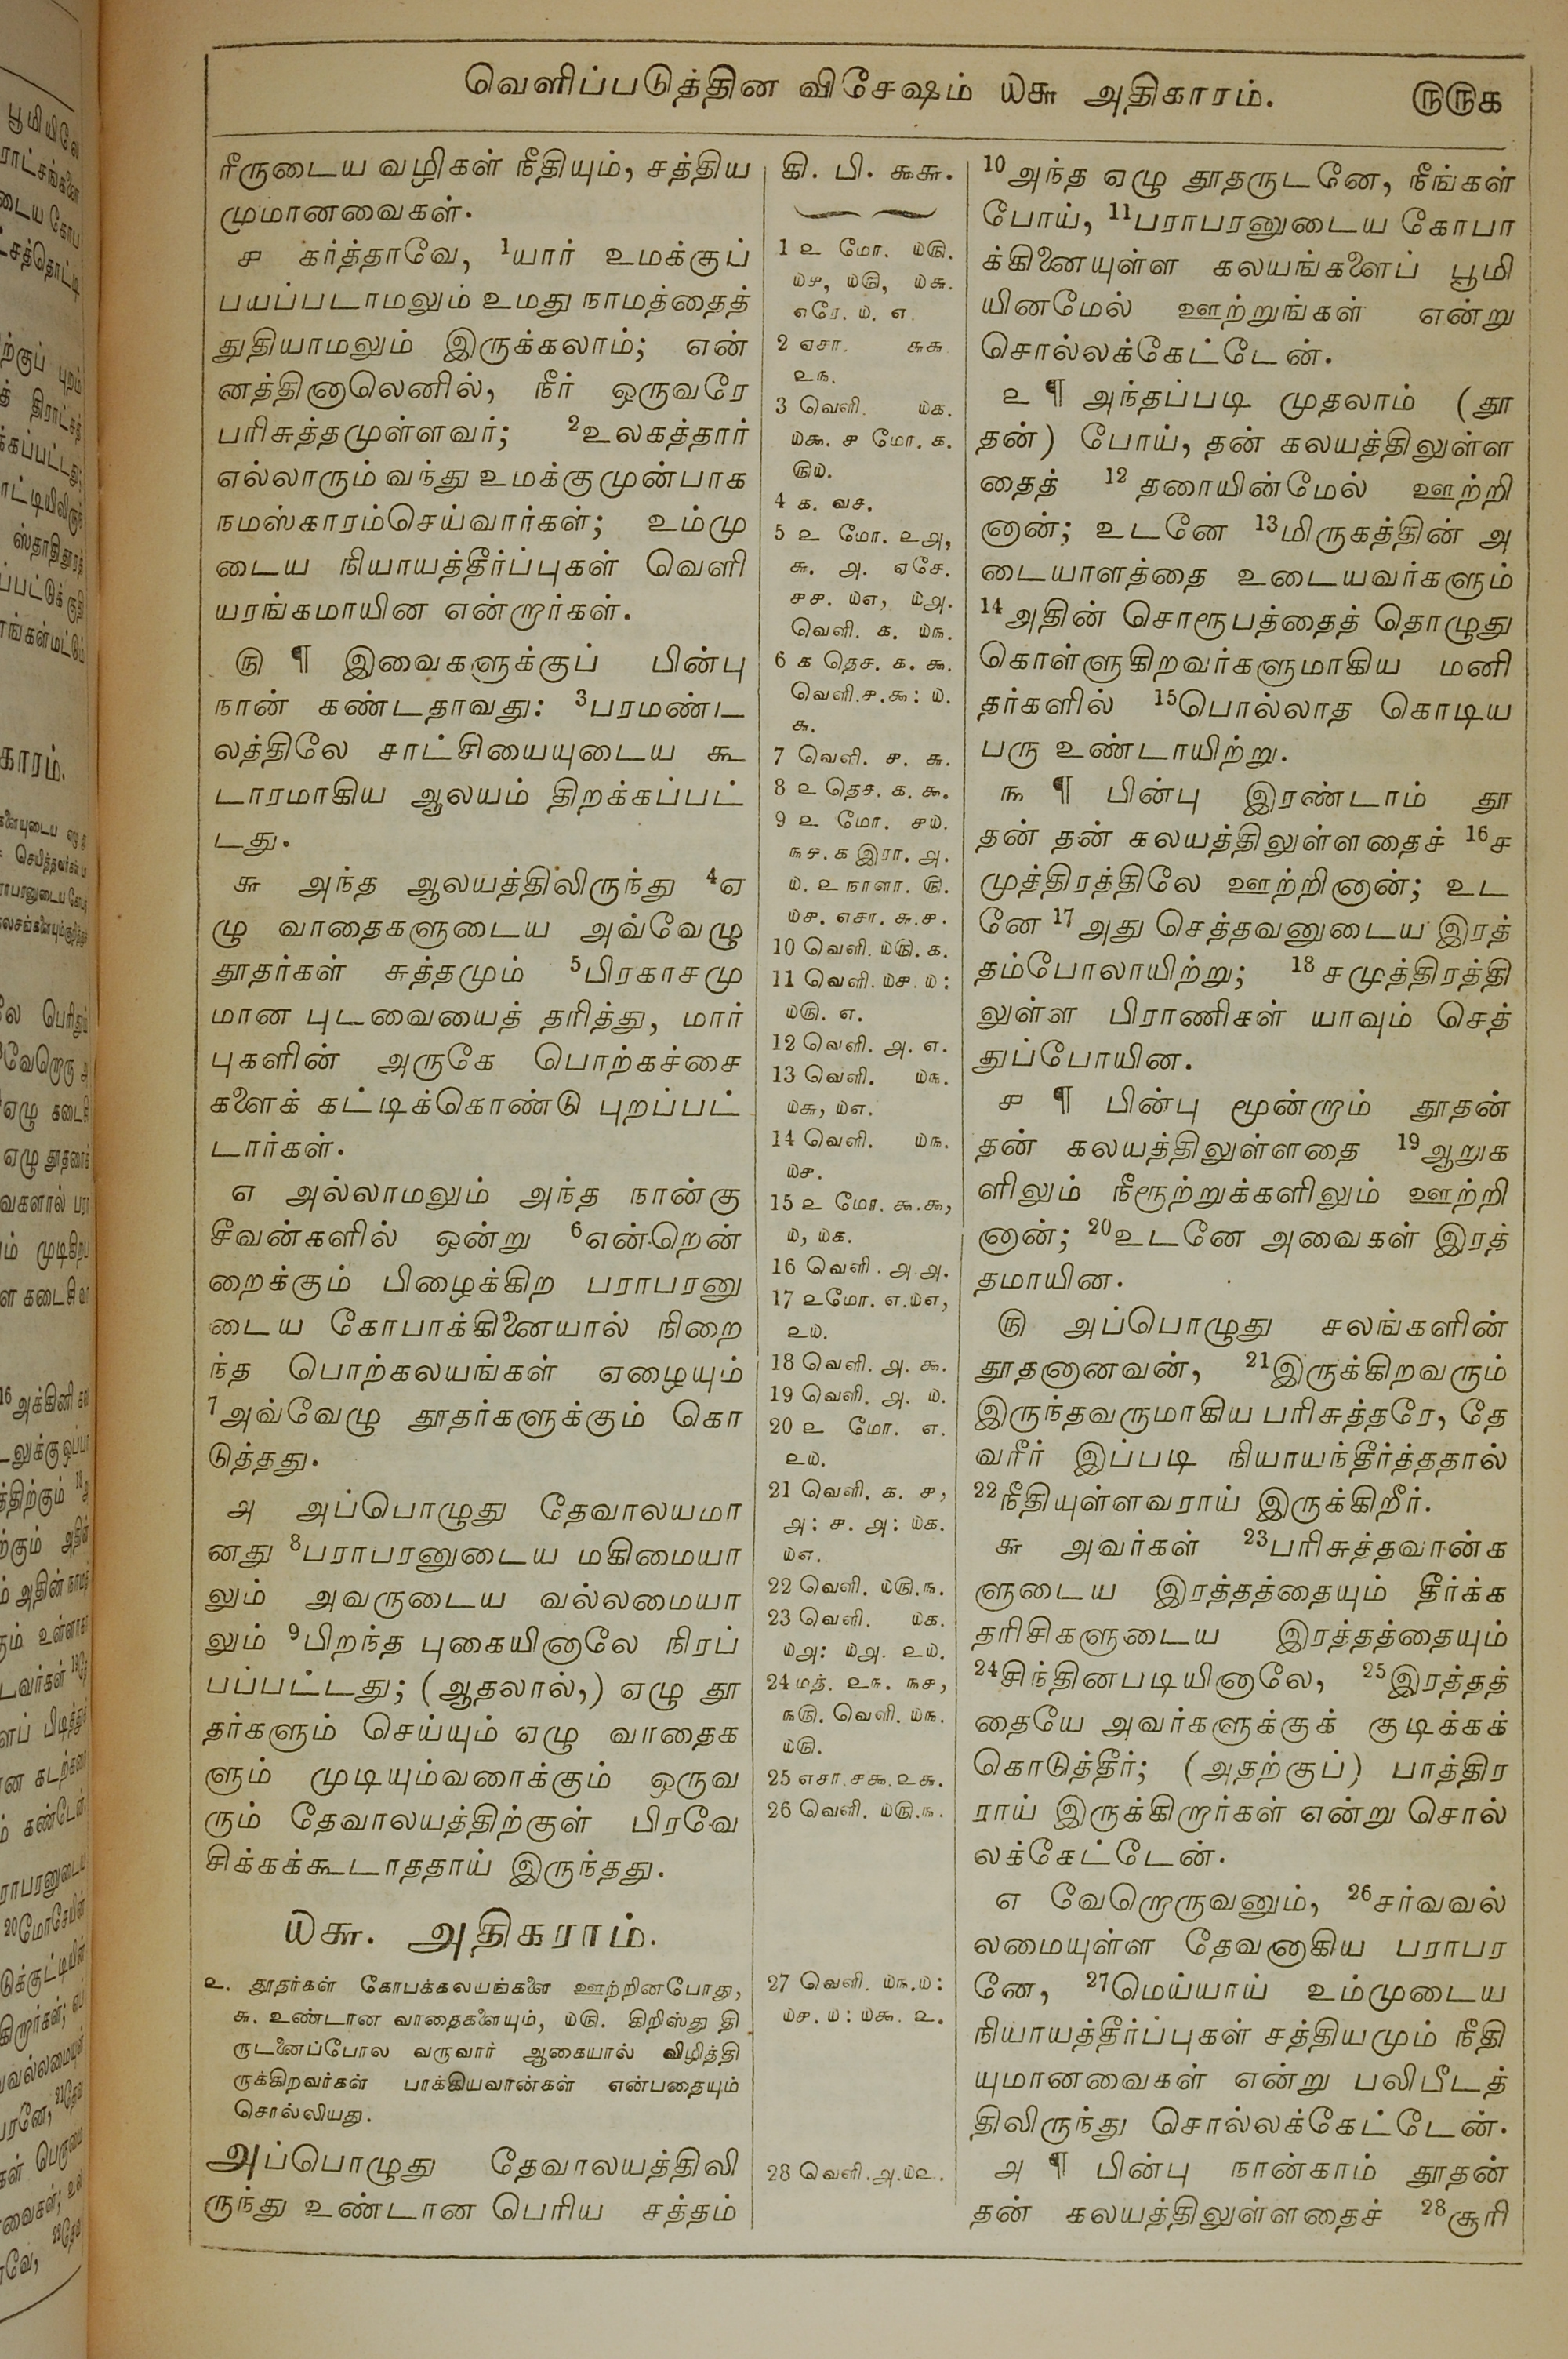 வெளிப்படுத்தின விசேஷம் ௰௬ அதிகாரம். ௫௫௧
ரீருடைய வழிகள் நீதியும், சத்திய
முமானவைகள்.
௪ கர்த்தாவே, 1யார் உமக்குப்
பயப்படாமலும் உமது நாமத்தைத்
துதியாமலும் இருக்கலாம்; என்
னத்தினாலெனில், நீர் ஒருவரே
பரிசுத்தமுள்ளவர்; 2உலகத்தார்
எல்லாரும் வந்து உமக்குமுன்பாக
நமஸ்காரம்செய்வார்கள்; உம்மு
டைய நியாயத்தீர்ப்புகள் வெளி
யரங்கமாயின என்றார்கள்.
௫ ¶ இவைகளுக்குப் பின்பு
நான் கண்டதாவது: 3பரமண்ட
லத்திலே சாட்சியையுடைய கூ
டாரமாகிய ஆலயம் திறக்கப்பட்
டது.
௬ அந்த ஆலயத்திலிருந்து 4ஏ
ழு வாதைகளுடைய அவ்வேழு
தூதர்கள் சுத்தமும் 5பிரகாசமு
மான புடவையைத் தரித்து, மார்
புகளின் அருகே பொற்கச்சை
களைக் கட்டிக்கொண்டு புறப்பட்
டார்கள்.
௭ அல்லாமலும் அந்த நான்கு
சீவன்களில் ஒன்று 6என்றென்
றைக்கும் பிழைக்கிற பராபரனு
டைய கோபாக்கினையால் நிறை
ந்த பொற்கலயங்கள் ஏழையும்
7அவ்வேழு தூதர்களுக்கும் கொ
டுத்தது.
௮ அப்பொழுது தேவாலயமா
னது 8பராபரனுடைய மகிமையா
லும் அவருடைய வல்லமையா
லும் 9பிறந்த புகையினாலே நிரப்
பப்பட்டது; (ஆதலால்,) ஏழு தூ
தர்களும் செய்யும் ஏழு வாதைக
ளும் முடியும்வரைக்கும் ஒருவ
ரும் தேவாலயத்திற்குள் பிரவே
சிக்கக்கூடாததாய் இருந்தது.
௰௬. அதிகராம்.
௨. தூதர்கள் கோபக்கலயங்களை ஊற்றினபோது,
௬. உண்டான வாதைகளையும், ௰௫. கிறிஸ்து தி
ருடனைப்போல வருவார் ஆகையால் விழித்தி
ருக்கிறவர்கள் பாக்கியவான்கள் என்பதையும்
சொல்லியது.
அப்பொழுது தேவாலயத்திலி
ருந்து உண்டான பெரிய சத்தம்
கி. பி. ௯௬.
1 ௨ மோ. ௰௫.
௰௪, ௰௫, ௰௬.
எரே. ௰. ௭.
2 ஏசா. ௬௬
௨௩.
3 வெளி. ௰௧.
௰௯. ௪ மோ. ௧.
௫௰.
4 ௧. வச.
5 ௨ மோ. ௨௮,
௬. ௮. ஏசே.
௪௪. ௰௭, ௰௮.
வெளி. ௧. ௰௩.
6 ௧ தெச. ௧. ௯.
வெளி.௪.௯: ௰.
௬.
7 வெளி. ௪. ௬.
8 ௨ தெச. ௧. ௯.
9 ௨ மோ. ௪௰.
௩௪. ௧ இரா. ௮.
௰. ௨ நாளா. ௫.
௰௪. எசா. ௬.௪.
10 வெளி. ௰௫.௧.
11 வெளி. ௰௪. ௰:
௰௫. ௭.
12 வெளி. ௮. ௭.
13 வெளி. ௰௩.
௰௬, ௰௭.
14 வெளி. ௰௩.
௰௪.
15 ௨ மோ. ௯.௯,
௰, ௰௧.
16 வெளி. ௮.௮.
17 ௨மோ. ௭.௰௭,
௨௰.
18 வெளி. ௮. ௯.
19 வெளி. ௮. ௰.
20 ௨ மோ. ௭.
௨௰.
21 வெளி. ௧. ௪,
௮: ௪. ௮: ௰௧.
௰௭.
22 வெளி. ௰௫.௩.
23 வெளி. ௰௧.
௰௮: ௰௮. ௨௰.
24 மத். ௨௩. ௩௪,
௩௫. வெளி. ௰௩.
௰௫.
25 எசா.௪௯.௨௬.
26 வெளி. ௰௫.௩.
27 வெளி. ௰௩.௰:
௰௪. ௰: ௰௯. ௨.
28 வெளி.௮.௰௨.
10அந்த ஏழு தூதருடனே, நீங்கள்
போய், 11பராபரனுடைய கோபா
க்கினையுள்ள கலயங்களைப் பூமி
யினமேல் ஊற்றுங்கள் என்று
சொல்லக்கேட்டேன்.
௨ ¶ அந்தப்படி முதலாம் (தூ
தன்) போய், தன் கலயத்திலுள்ள
தைத் 12 தரையின்மேல் ஊற்றி
னான்; உடனே 13மிருகத்தின் அ
டையாளத்தை உடையவர்களும்
14அதின் சொரூபத்தைத் தொழுது
கொள்ளுகிறவர்களுமாகிய மனி
தர்களில் 15பொல்லாத கொடிய
பரு உண்டாயிற்று.
௩ ¶ பின்பு இரண்டாம் தூ
தன் தன் கலயத்திலுள்ளதைச் 16ச
முத்திரத்திலே ஊற்றினான்; உட
னே 17அது செத்தவனுடைய இரத்
தம்போலாயிற்று; 18சமுத்திரத்தி
லுள்ள பிராணிகள் யாவும் செத்
துப்போயின.
௪ ¶ பின்பு மூன்றாம் தூதன்
தன் கலயத்திலுள்ளதை 19ஆறுக
ளிலும் நீரூற்றுக்களிலும் ஊற்றி
னான்; 20உடனே அவைகள் இரத்
தமாயின.
௫ அப்பொழுது சலங்களின்
தூதனானவன், 21இருக்கிறவரும்
இருந்தவருமாகிய பரிசுத்தரே, தே
வரீர் இப்படி நியாயந்தீர்த்ததால்
22நீதியுள்ளவராய் இருக்கிறீர்.
௬ அவர்கள் 23பரிசுத்தவான்க
ளுடைய இரத்தத்தையும் தீர்க்க
தரிசிகளுடைய இரத்தத்தையும்
24சிந்தினபடியினாலே, 25இரத்தத்
தையே அவர்களுக்குக் குடிக்கக்
கொடுத்தீர்; (அதற்குப்) பாத்திர
ராய் இருக்கிறார்கள் என்று சொல்
லக்கேட்டேன்.
௭ வேறொருவனும், 26சர்வவல்
லமையுள்ள தேவனாகிய பராபர
னே, 27மெய்யாய் உம்முடைய
நியாயத்தீர்ப்புகள் சத்தியமும் நீதி
யுமானவைகள் என்று பலிபீடத்
திலிருந்து சொல்லக்கேட்டேன்.
௮ ¶ பின்பு நான்காம் தூதன்
தன் கலயத்திலுள்ளதைச் 28சூரி